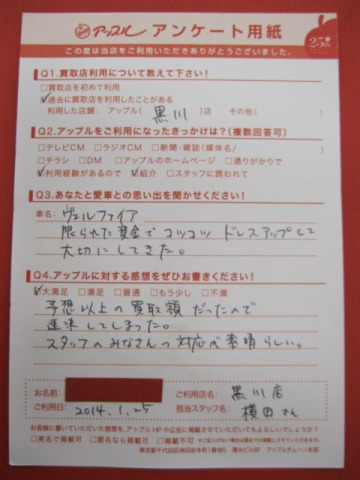 アップル アンケート用紙
25th
この度は当店をご利用いただきありがとうございました。
Q1.買取店利用について教えて下さい!
□買取店を初めて利用
☑過去に買取店を利用したことがある
利用した店舗: アップル( 黒川 )店 その他(
Q2.アップルをご利用になったきっかけは?(複数回答可)
□テレビCM □ラジオCM □新聞・雑誌(媒体名/ )
□チラシ □DM □アップルのホームページ □通りがかりで
☑利用経験があるので ☑紹介 □スタッフに誘われて
Q3.あなたと愛車との思い出を聞かせください!
車名: ヴェルファイア
限られた資金でコツコツ ドレスアップして
大切にしてきた。
Q4.アップルに対する感想をぜひお書きください!
☑大満足 □満足 □普通 □もう少し □不満
予想以上の買取額だったので
即決してしまった。
スタッフのみなさんの対応も素晴らしい。
お名前:
ご利用店名: 黒川店
ご利用日: 2014.1.25
担当スタッフ名: 横田さん
お客様に書いていただいた感想を、アップルHPや広告に掲載させていただいてもよろしいでしょうか?
□実名で掲載可 □匿名なら掲載可 □掲載不可